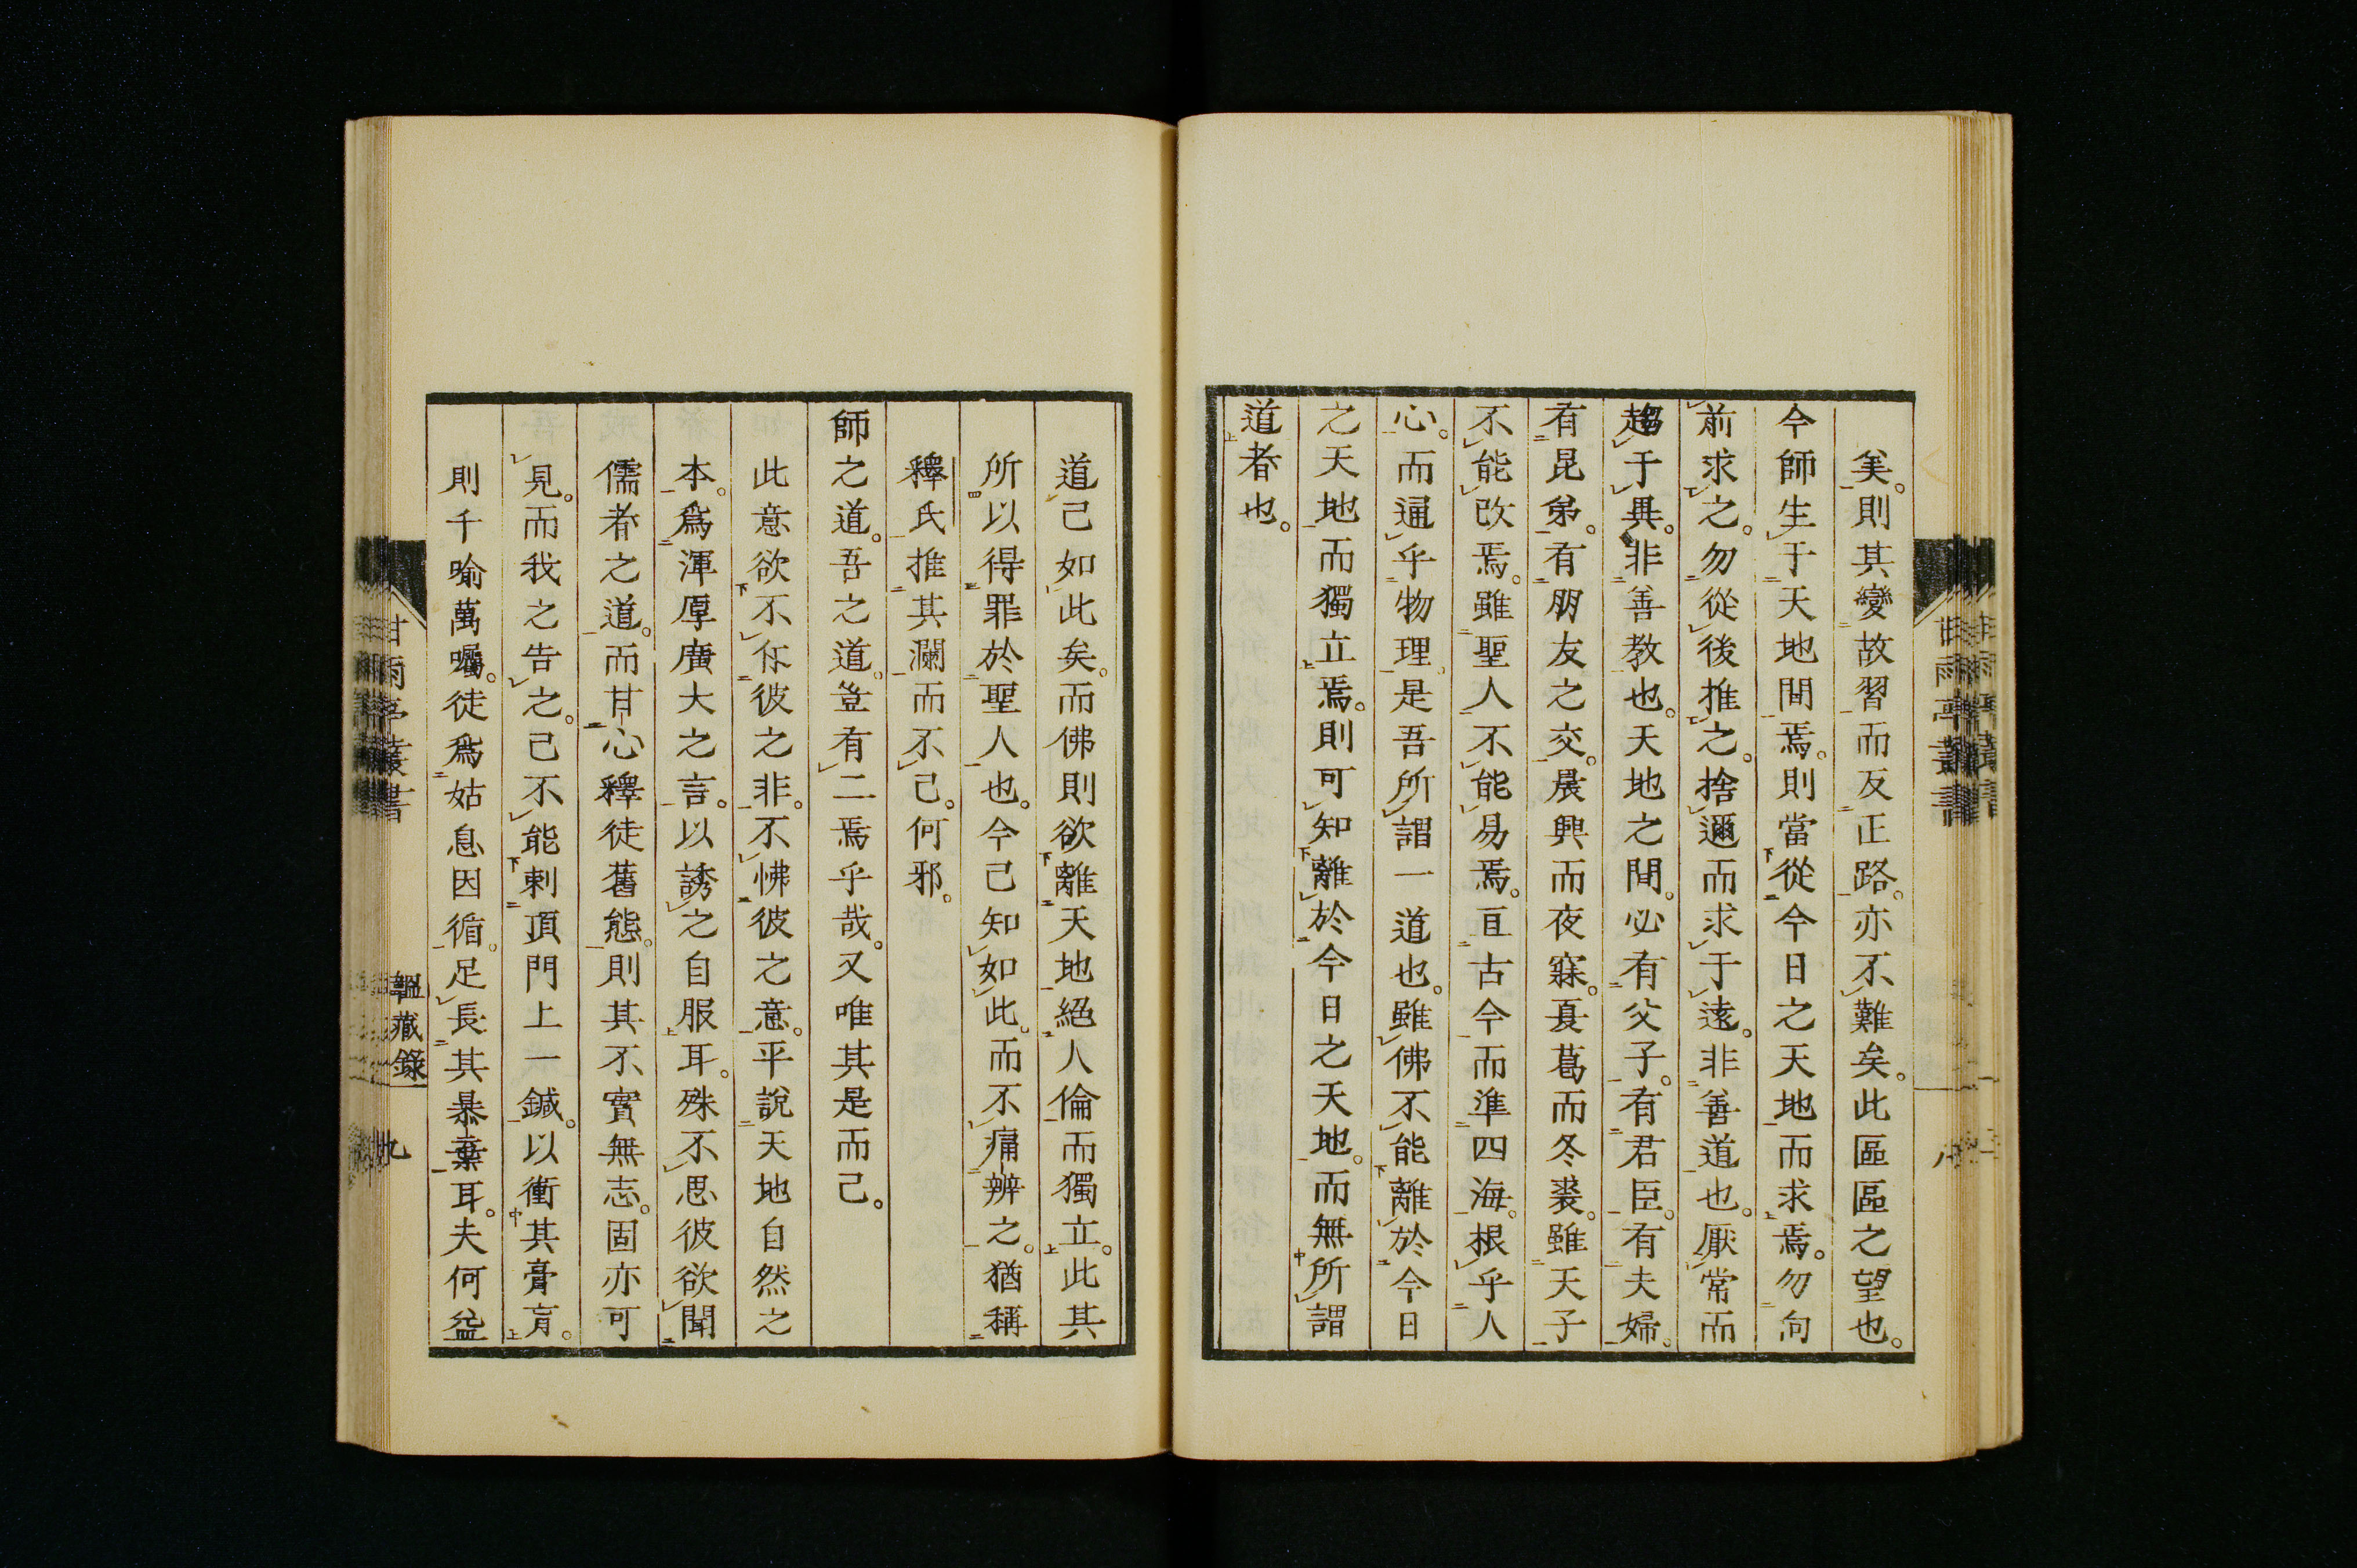 矣。則其變故習而反正路。亦不難矣。此區區之望也。
今師生于天地間焉。則當從今日之天地而求焉。勿向
前求之。勿從後推之。捨邇而求于遠。非善道也。厭常而
趨于異。非善教也。天地之間。必有父子。有君臣。有夫婦。
有昆弟。有朋友之交。晨興而夜寐。夏葛而冬裘。雖天子
不能改焉。雖聖人不能易焉。亘古今而準四海。根乎人
心。而逼乎物理。是吾所謂一道也。雖佛不能離於今日
之天地而獨立焉。則可知離於今日之天地。而無所謂
道者也。
甘雨亭叢書
八
道已如此矣。而佛則欲離天地絕人倫而獨立。此其
所以得罪於聖人也。今已知如此。而不痛辨之。猶稱
釋氏推其瀾而不已。何邪。
師之道。吾之道。豈有二焉乎哉。又唯其是而已。
此意欲不作彼之非。不怫彼之意。平說天地自然之
本。爲渾厚廣大之言。以誘之自服耳。殊不思彼欲聞
儒者之道。而甘心釋徒舊態。則其不實無志。固亦可
見。而我之告之。已不能刺頂門上一鍼。以衝其膏肓。
則千喻萬囑。徒爲姑息因循。足長其暴棄耳。夫何益
甘雨亭叢書
韞藏錄
九